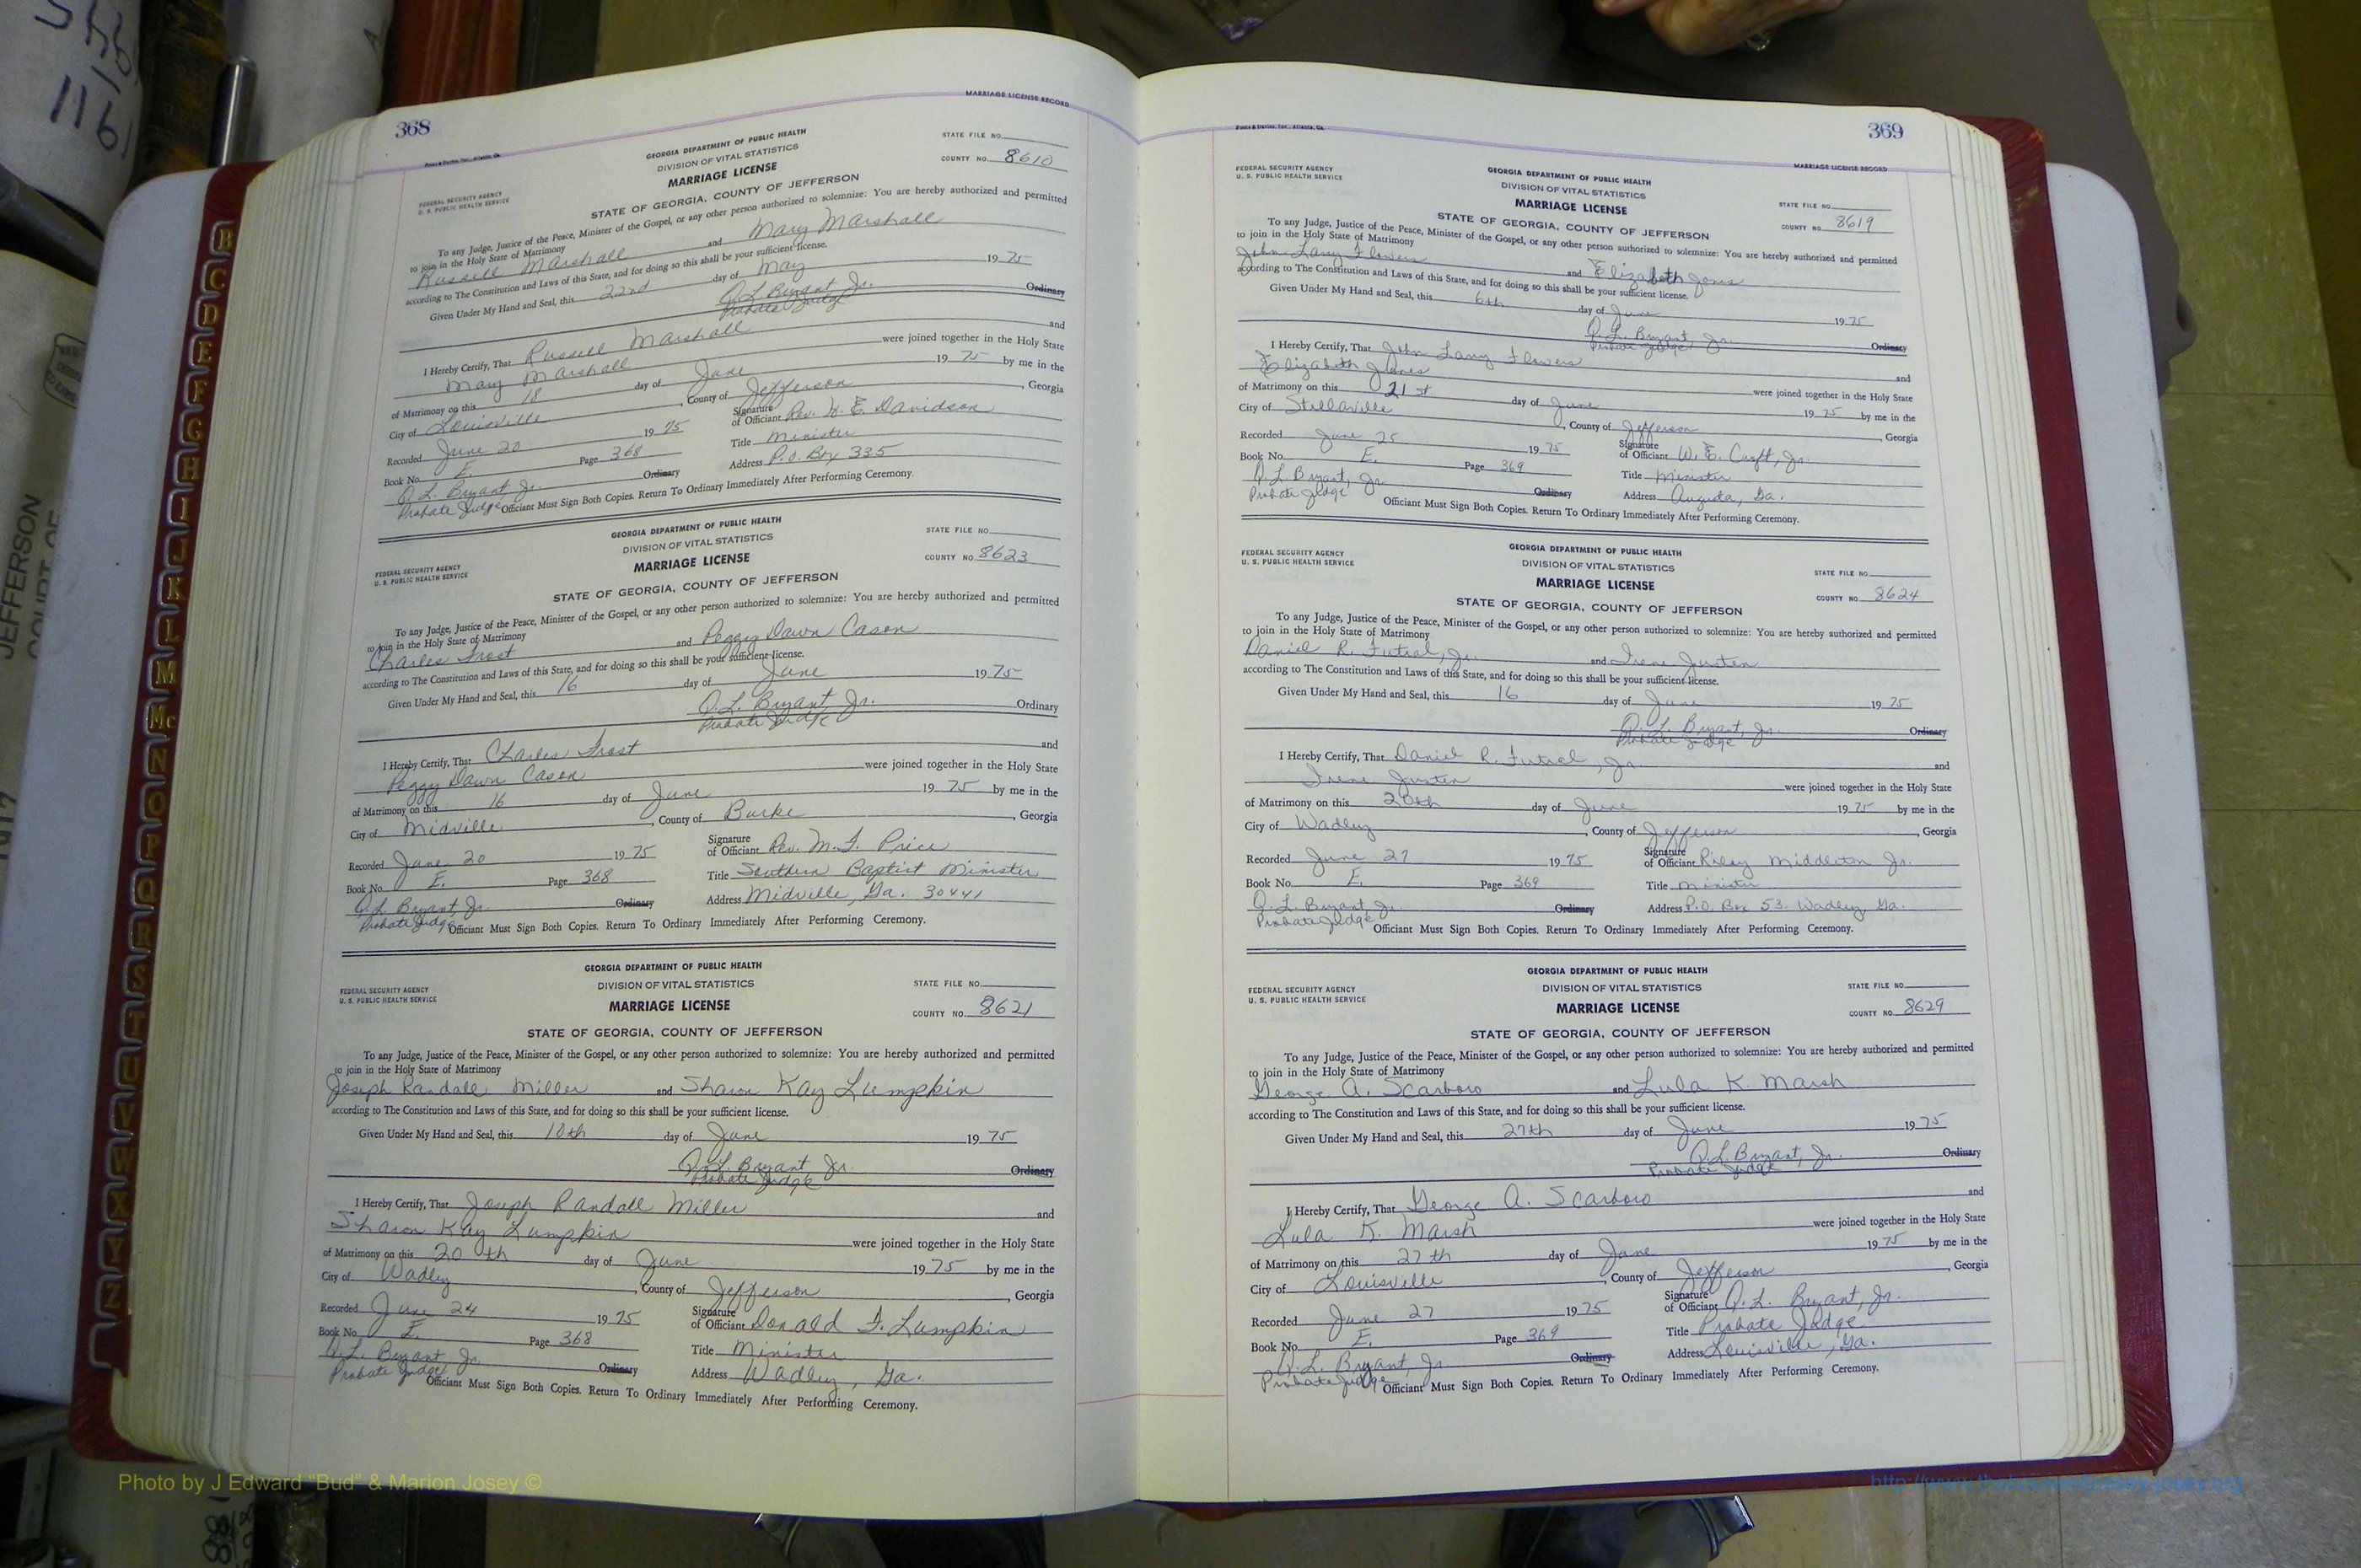 368
MARRIAGE LICENSE RECORD
GEORGIA DEPARTMENT OF PUBLIC HEALTH
DIVISION OF VITAL STATISTICS
MARRIAGE LICENSE
STATE OF GEORGIA, COUNTY OF JEFFERSON
FEDERAL SECURITY AGENCY
U. S. PUBLIC HEALTH SERVICE
STATE FILE NO.
COUNTY NO. 8610
To any Judge, Justice of the Peace, Minister of the Gospel, or any other person authorized to solemnize: You are hereby authorized and permitted
to join in the Holy State of Matrimony
Russell Marshall and Mary Marshall
according to The Constitution and Laws of this State, and for doing so this shall be your sufficient license.
Given Under My Hand and Seal, this 22nd day of May 1975
Q. L. Bryant, Jr. Ordinary
Probate Judge
I Hereby Certify, That Russell Marshall and
Mary Marshall were joined together in the Holy State
of Matrimony on this 18 day of June 1975 by me in the
City of Louisville, County of Jefferson, Georgia
Recorded June 20 1975 Signature of Officiant Rev. W. E. Davidson
Book No. E. Page 368 Title Minister
Q. L. Bryant Jr. Ordinary Address P.O. Box 335
Probate Judge Officiant Must Sign Both Copies. Return To Ordinary Immediately After Performing Ceremony.
GEORGIA DEPARTMENT OF PUBLIC HEALTH
DIVISION OF VITAL STATISTICS
MARRIAGE LICENSE
STATE OF GEORGIA, COUNTY OF JEFFERSON
FEDERAL SECURITY AGENCY
U. S. PUBLIC HEALTH SERVICE
STATE FILE NO.
COUNTY NO. 8623
To any Judge, Justice of the Peace, Minister of the Gospel, or any other person authorized to solemnize: You are hereby authorized and permitted
to join in the Holy State of Matrimony
Charles Frost and Peggy Dawn Cason
according to The Constitution and Laws of this State, and for doing so this shall be your sufficient license.
Given Under My Hand and Seal, this 16 day of June 1975
Q. L. Bryant, Jr. Ordinary
Probate Judge
I Hereby Certify, That Charles Frost and
Peggy Dawn Cason were joined together in the Holy State
of Matrimony on this 16 day of June 1975 by me in the
City of Midville, County of Burke, Georgia
Recorded June 20 1975 Signature of Officiant Rev. M. F. Price
Book No. E. Page 368 Title Southern Baptist Minister
Q. L. Bryant, Jr. Ordinary Address Midville, Ga. 30441
Probate Judge Officiant Must Sign Both Copies. Return To Ordinary Immediately After Performing Ceremony.
GEORGIA DEPARTMENT OF PUBLIC HEALTH
DIVISION OF VITAL STATISTICS
MARRIAGE LICENSE
STATE OF GEORGIA, COUNTY OF JEFFERSON
FEDERAL SECURITY AGENCY
U. S. PUBLIC HEALTH SERVICE
STATE FILE NO.
COUNTY NO. 8621
To any Judge, Justice of the Peace, Minister of the Gospel, or any other person authorized to solemnize: You are hereby authorized and permitted
to join in the Holy State of Matrimony
Joseph Randall Miller and Sharon Kay Lumpkin
according to The Constitution and Laws of this State, and for doing so this shall be your sufficient license.
Given Under My Hand and Seal, this 10th day of June 1975
Q. L. Bryant Jr. Ordinary
Probate Judge
I Hereby Certify, That Joseph Randall Miller and
Sharon Kay Lumpkin were joined together in the Holy State
of Matrimony on this 20th day of June 1975 by me in the
City of Wadley, County of Jefferson, Georgia
Recorded June 24 1975 Signature of Officiant Donald F. Lumpkin
Book No. E. Page 368 Title Minister
Q. L. Bryant Jr. Ordinary Address Wadley, Ga.
Probate Judge Officiant Must Sign Both Copies. Return To Ordinary Immediately After Performing Ceremony.
369
MARRIAGE LICENSE RECORD
GEORGIA DEPARTMENT OF PUBLIC HEALTH
DIVISION OF VITAL STATISTICS
MARRIAGE LICENSE
STATE OF GEORGIA, COUNTY OF JEFFERSON
FEDERAL SECURITY AGENCY
U. S. PUBLIC HEALTH SERVICE
STATE FILE NO.
COUNTY NO. 8619
To any Judge, Justice of the Peace, Minister of the Gospel, or any other person authorized to solemnize: You are hereby authorized and permitted
to join in the Holy State of Matrimony
John Larry Flowers and Elizabeth Jones
according to The Constitution and Laws of this State, and for doing so this shall be your sufficient license.
Given Under My Hand and Seal, this 6th day of June 1975
Q. L. Bryant, Jr. Ordinary
Probate Judge
I Hereby Certify, That John Larry Flowers and
Elizabeth Jones were joined together in the Holy State
of Matrimony on this 21st day of June 1975 by me in the
City of Stellaville, County of Jefferson, Georgia
Recorded June 25 1975 Signature of Officiant W. E. Jr.
Book No. E. Page 369 Title Minister
Q. L. Bryant, Jr. Ordinary Address Augusta, Ga.
Probate Judge Officiant Must Sign Both Copies. Return To Ordinary Immediately After Performing Ceremony.
GEORGIA DEPARTMENT OF PUBLIC HEALTH
DIVISION OF VITAL STATISTICS
MARRIAGE LICENSE
STATE OF GEORGIA, COUNTY OF JEFFERSON
FEDERAL SECURITY AGENCY
U. S. PUBLIC HEALTH SERVICE
STATE FILE NO.
COUNTY NO. 8624
To any Judge, Justice of the Peace, Minister of the Gospel, or any other person authorized to solemnize: You are hereby authorized and permitted
to join in the Holy State of Matrimony
Daniel R. Futral, Jr. and Irene Justen
according to The Constitution and Laws of this State, and for doing so this shall be your sufficient license.
Given Under My Hand and Seal, this 16 day of June 1975
Q. L. Bryant, Jr. Ordinary
Probate Judge
I Hereby Certify, That Daniel R. Futral, Jr. and
Irene Justen were joined together in the Holy State
of Matrimony on this 20th day of June 1975 by me in the
City of Wadley, County of Jefferson, Georgia
Recorded June 27 1975 Signature of Officiant Riley Middleton Jr.
Book No. E. Page 369 Title Minister
Q. L. Bryant Jr. Ordinary Address P.O. Box 53 Wadley, Ga.
Probate Judge Officiant Must Sign Both Copies. Return To Ordinary Immediately After Performing Ceremony.
GEORGIA DEPARTMENT OF PUBLIC HEALTH
DIVISION OF VITAL STATISTICS
MARRIAGE LICENSE
STATE OF GEORGIA, COUNTY OF JEFFERSON
FEDERAL SECURITY AGENCY
U. S. PUBLIC HEALTH SERVICE
STATE FILE NO.
COUNTY NO. 8629
To any Judge, Justice of the Peace, Minister of the Gospel, or any other person authorized to solemnize: You are hereby authorized and permitted
to join in the Holy State of Matrimony
George A. Scarboro and Lula K. Marsh
according to The Constitution and Laws of this State, and for doing so this shall be your sufficient license.
Given Under My Hand and Seal, this 27th day of June 1975
Q. L. Bryant, Jr. Ordinary
Probate Judge
I Hereby Certify, That George A. Scarboro and
Lula K. Marsh were joined together in the Holy State
of Matrimony on this 27th day of June 1975 by me in the
City of Louisville, County of Jefferson, Georgia
Recorded June 27 1975 Signature of Officiant Q. L. Bryant, Jr.
Book No. E. Page 369 Title Probate Judge
Q. L. Bryant, Jr. Ordinary Address Louisville, Ga.
Probate Judge Officiant Must Sign Both Copies. Return To Ordinary Immediately After Performing Ceremony.
B
C
D
E
F
G
H
I
J
K
L
M
Mc
N
O
P
Q
R
S
T
U
V
W
X
Y
Z
JEFFERSON
COURT OF
1161
Photo by J Edward "Bud" & Marion Josey ©